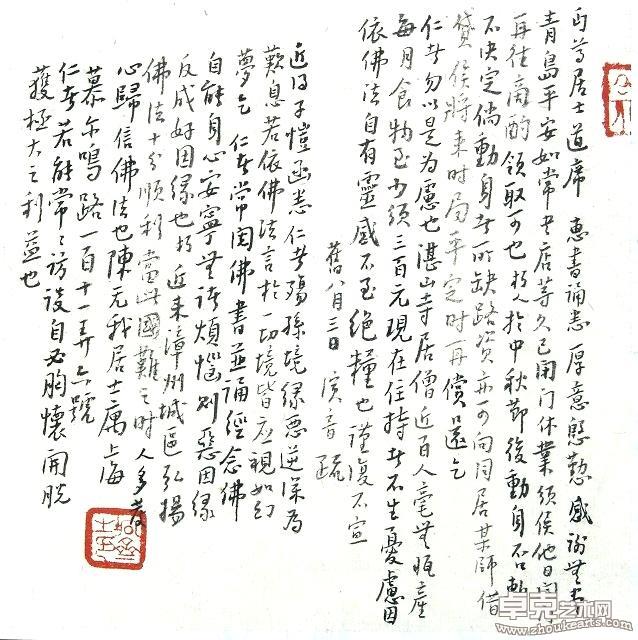 丏尊居士道席 惠書誦悉厚意慇懃感謝無盡
青島平安如常書店等久已閉門休業須俟他日開
再往商酌領取可也朽人於中秋節後動身否
不決定倘動身者所缺路資亦可向同居某師借
貸俟將來時局平定時再償還乞
仁者勿以是為慮也湛山寺居僧近百人毫無恆產
每月食物至少須三百元現在住持者不生憂慮因
依佛法自有靈感不至絕糧也謹復不宣
舊八月三日 演音疏
近得子愷函悉仁者殤孫境緣惡逆深為
歎息若依佛法言於一切境皆應視如幻
夢乞 仁者常閱佛書並誦經念佛
自能身心安寧無諸煩惱則惡因緣
反成好因緣也朽 近來漳州城區弘揚
佛法十分順利當此國難之時人多發
心歸信佛法也陳无我居士寓上海
慕尔鳴路一百十一弄六號
仁者若能常訪談自必胸懷開脫
獲極大之利益也
卓克艺术网
www.zhoukearts.com